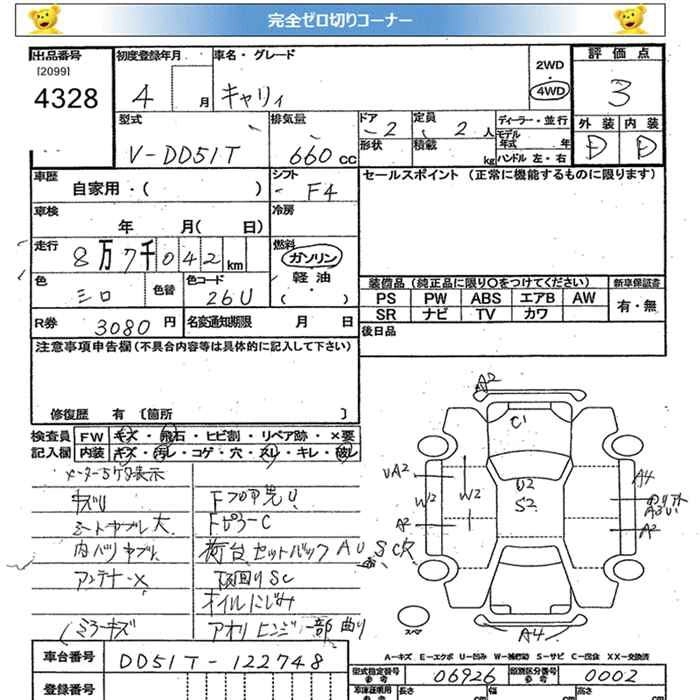 完全ゼロ切りコーナー
出品番号 初度登録年月 車名・グレード 2WD・4WD 評価点
[2099]
4328 4 月 キャリィ 3
型式 排気量 ドア 定員 ディーラー・並行 外装 内装
V-DD51T 660cc 2 2人 モデル年式 年 D D
形状 積載 kg ハンドル 左・右
車歴 シフト セールスポイント (正常に機能するものに限ります)
自家用・( ) F4
車検 冷房
年 月( 日)
走行 燃料
8万7千042km ガソリン
軽油・( )
色 色替 色コード 装備品 (純正品に限り〇をつけてください) 新車保証書
シロ 26U PS PW ABS エアB AW 有・無
SR ナビ TV カワ
R券 3080円 名変通知期限 月 日 後日品
注意事項申告欄(不具合内容等は具体的に記入して下さい)
修復歴 有 [箇所 ]
検査員 FW キズ・飛石・ヒビ割・リペア跡・×要
記入欄 内装 キズ・汚レ・コゲ・穴・スレ・キレ・破レ
メーター5ケタ表示
キズU
シートヤブレ大 FピラーC
内バリヤブレ 荷台セットバックAU SC穴
アンテナ-× 板回りSC
オイルにじみ
ミラーキズ アオリヒンジ一部曲り
A2
C1
UA2
W2
W2
U2
S2
A4
A2
A2
A4
スペア
A-キズ E-エクボ U-凹み W-補修跡 S-サビ C-腐食 XX-交換済
車台番号 DD51T-122748 型式指定番号 参考 06926 類別区分番号 参考 0002
登録番号 車庫証明用 参考 長さ 幅 高さ